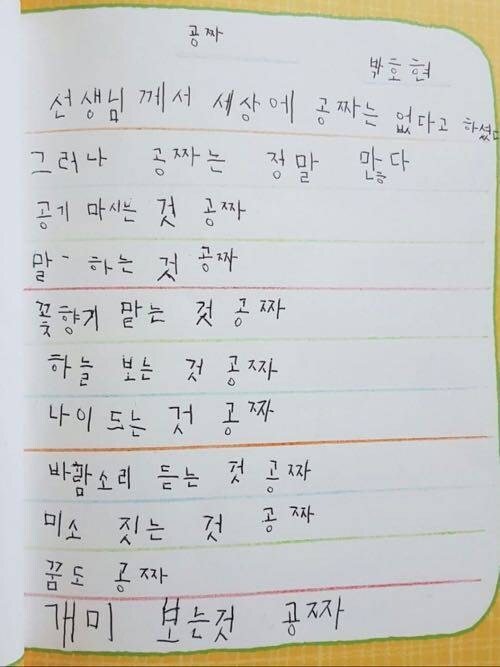 공짜
박호현
선생님 께서 세상에 공짜는 없다고 하셨다
그러나 공짜는 정말 많다
공기 마시는 것 공짜
말- 하는 것 공짜
꽃향기 맡는 것 공짜
하늘 보는 것 공짜
나이 드는 것 공짜
바람소리 듣는 것 공짜
미소 짓는 것 공짜
꿈도 공짜
개미 보는것 공짜